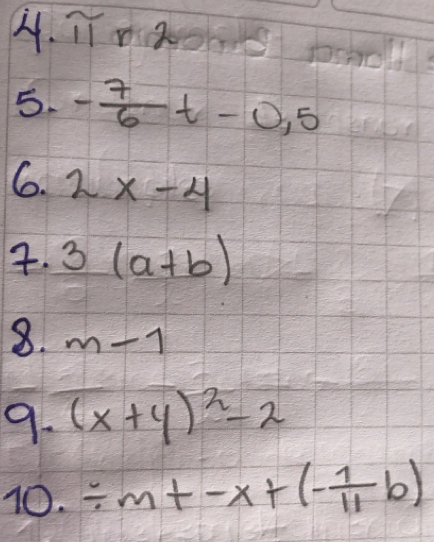 4. π r 2
5. -7/6 t - 0,5
6. 2 x - 4
7. 3 (a+b)
8. m - 1
9. (x+y)² - 2
10. ÷ m + - x + (-1/11 b)